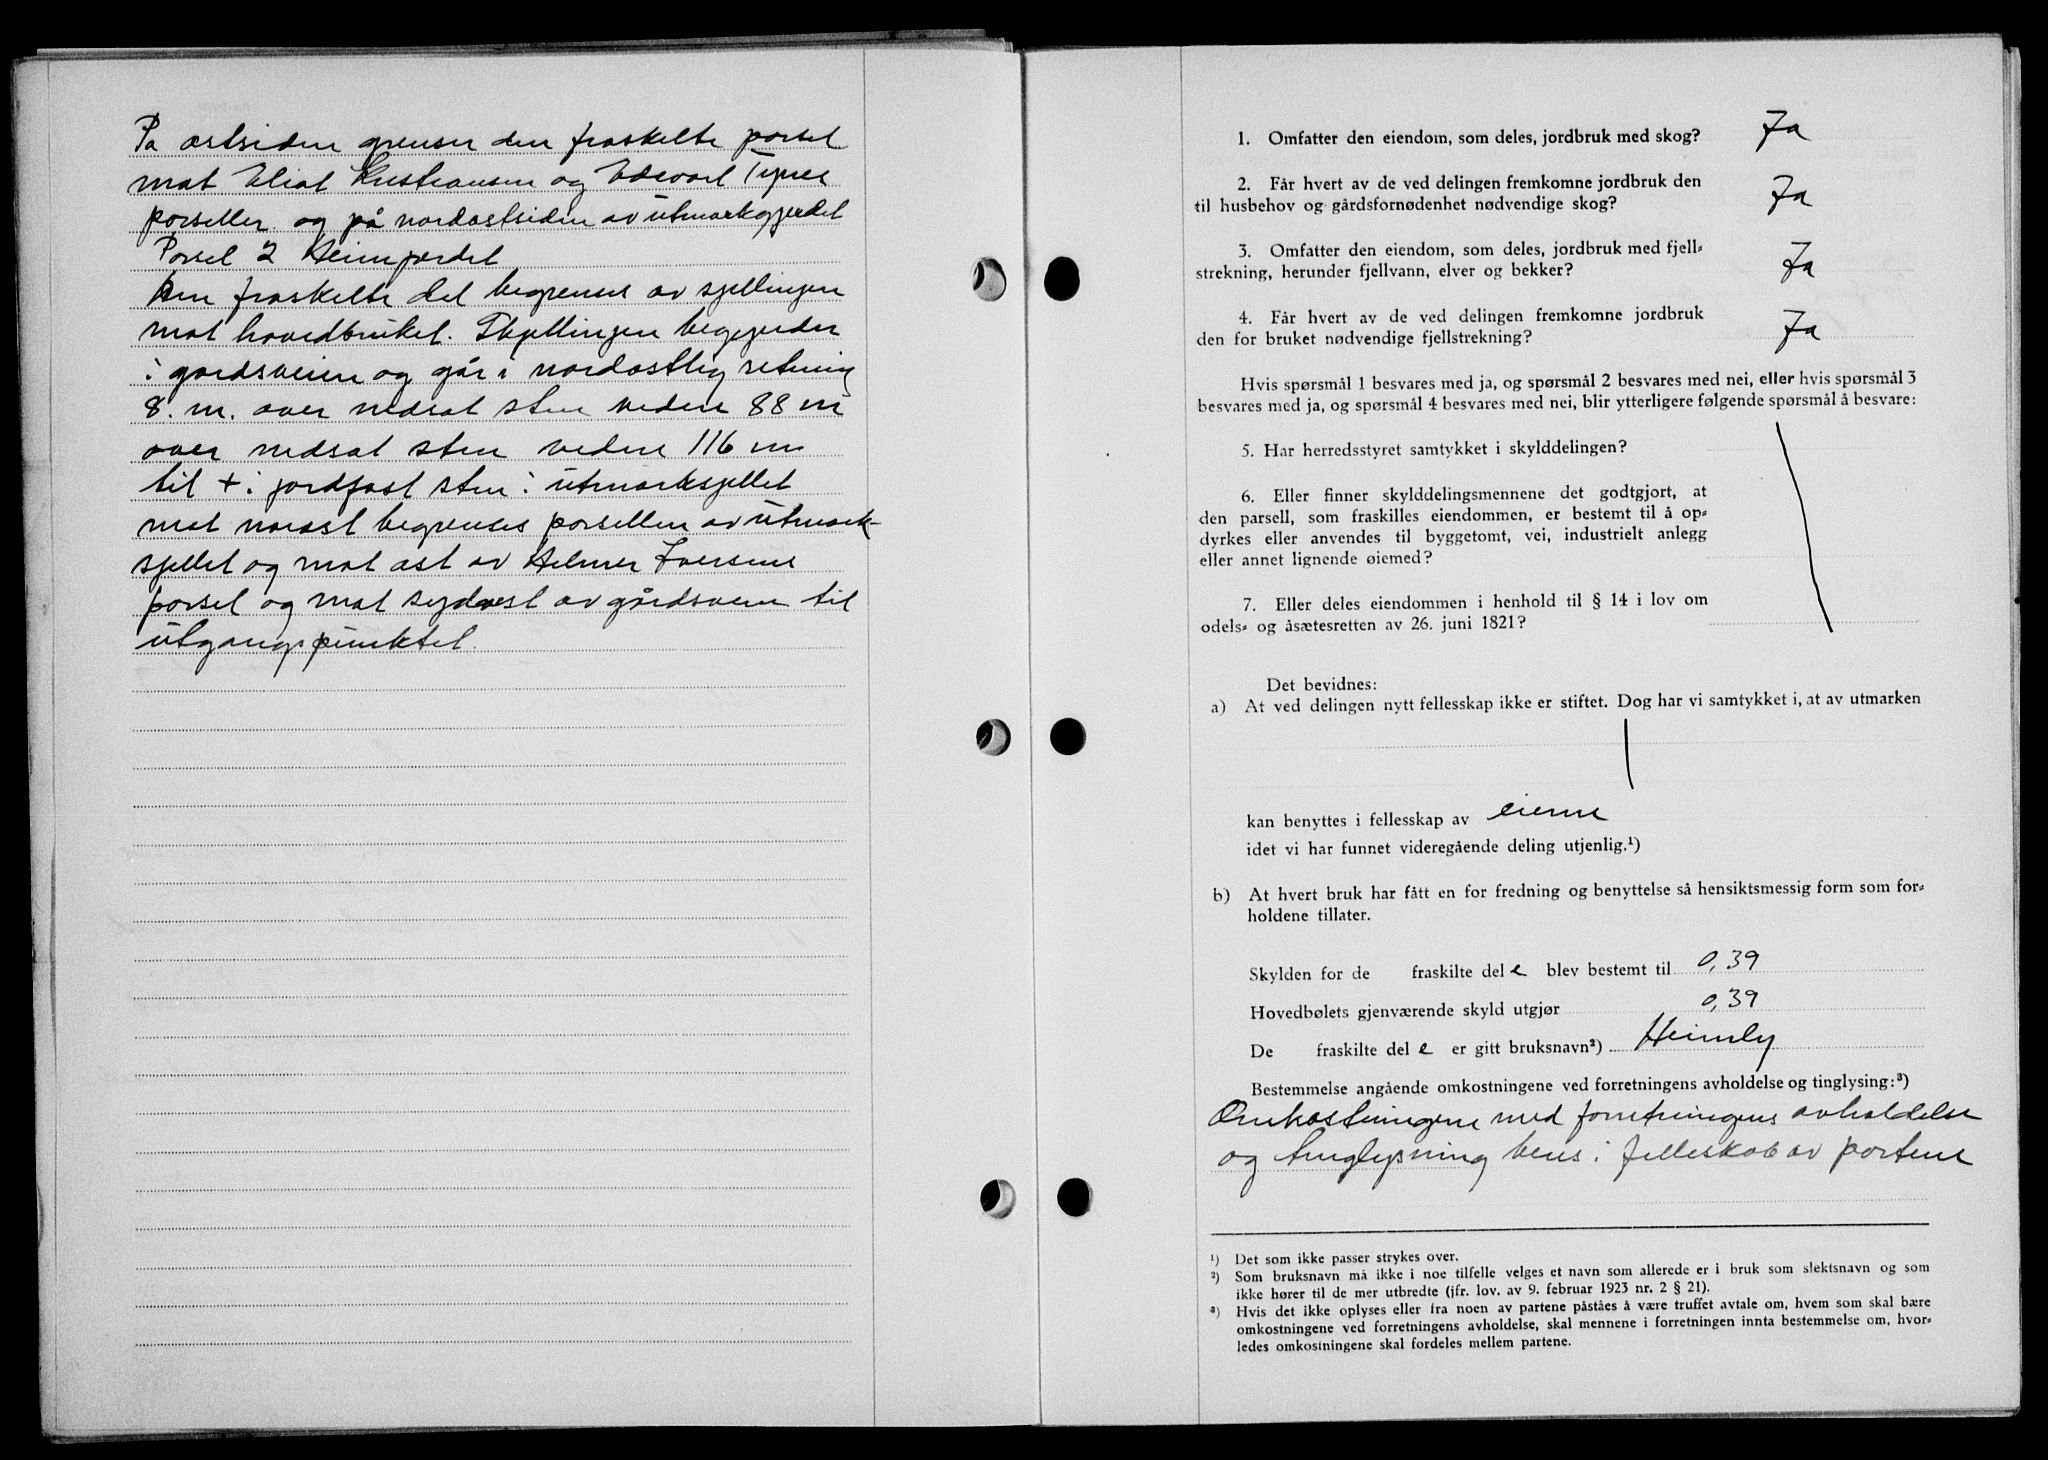 På østsiden grenser den fraskelte porsel
mot Eliot Kristiansen og Edevart
porseller og på nordøstsiden av utmarkgjerdet
Porsel 2 Heimjordet
Den fraskelte del begrenses av sjellingen
mot hovedbruket. Skjellingen begynder
i gordsveien og går i nordøstlig retning
8. m. over nedsat sten videre 88 m
over nedsat sten videre 116 m
til + i jordfast sten i utmarksjellet
mot norøst begrenses porsellen av utmark-
sjellet og mot øst av Helmer Iversens
porsel og mot sydvest av gårdsveien til
utgangspunktet.
1. Omfatter den eiendom, som deles, jordbruk med skog? Ja
2. Får hvert av de ved delingen fremkomne jordbruk den
til husbehov og gårdsfornødenhet nødvendige skog? Ja
3. Omfatter den eiendom, som deles, jordbruk med fjell-
strekning, herunder fjellvann, elver og bekker? Ja
4. Får hvert av de ved delingen fremkomne jordbruk
den for bruket nødvendige fjellstrekning? Ja
Hvis spørsmål 1 besvares med ja, og spørsmål 2 besvares med nei, eller hvis spørsmål 3
besvares med ja, og spørsmål 4 besvares med nei, blir ytterligere følgende spørsmål å besvare:
5. Har herredsstyret samtykket i skylddelingen?
6. Eller finner skylddelingsmennene det godtgjort, at
den parsell, som fraskilles eiendommen, er bestemt til å op-
dyrkes eller anvendes til byggetomt, vei, industrielt anlegg
eller annet lignende øiemed?
7. Eller deles eiendommen i henhold til § 14 i lov om
odels- og åsætesretten av 26. juni 1821?
Det bevidnes:
a) At ved delingen nytt fellesskap ikke er stiftet. Dog har vi samtykket i, at av utmarken
kan benyttes i fellesskap av eierne
idet vi har funnet videregående deling utjenlig.¹)
b) At hvert bruk har fått en for fredning og benyttelse så hensiktsmessig form som for-
holdene tillater.
Skylden for de fraskilte dele blev bestemt til 0,39
Hovedbølets gjenværende skyld utgjør 0,39
De fraskilte dele er gitt bruksnavn²) Heimly
Bestemmelse angående omkostningene ved forretningens avholdelse og tinglysing:³)
Omkostningene med forretningens avholdelse
og tinglysning beres i felleskab av partene
¹) Det som ikke passer strykes over.
²) Som bruksnavn må ikke i noe tilfelle velges et navn som allerede er i bruk som slektsnavn og som
ikke hører til de mer utbredte (jfr. lov. av 9. februar 1923 nr. 2 § 21).
³) Hvis det ikke oplyses eller fra noen av partene påståes å være truffet avtale om, hvem som skal bære
omkostningene ved forretningens avholdelse, skal mennene i forretningen innta bestemmelse om, hvor-
ledes omkostningene skal fordeles mellem partene.